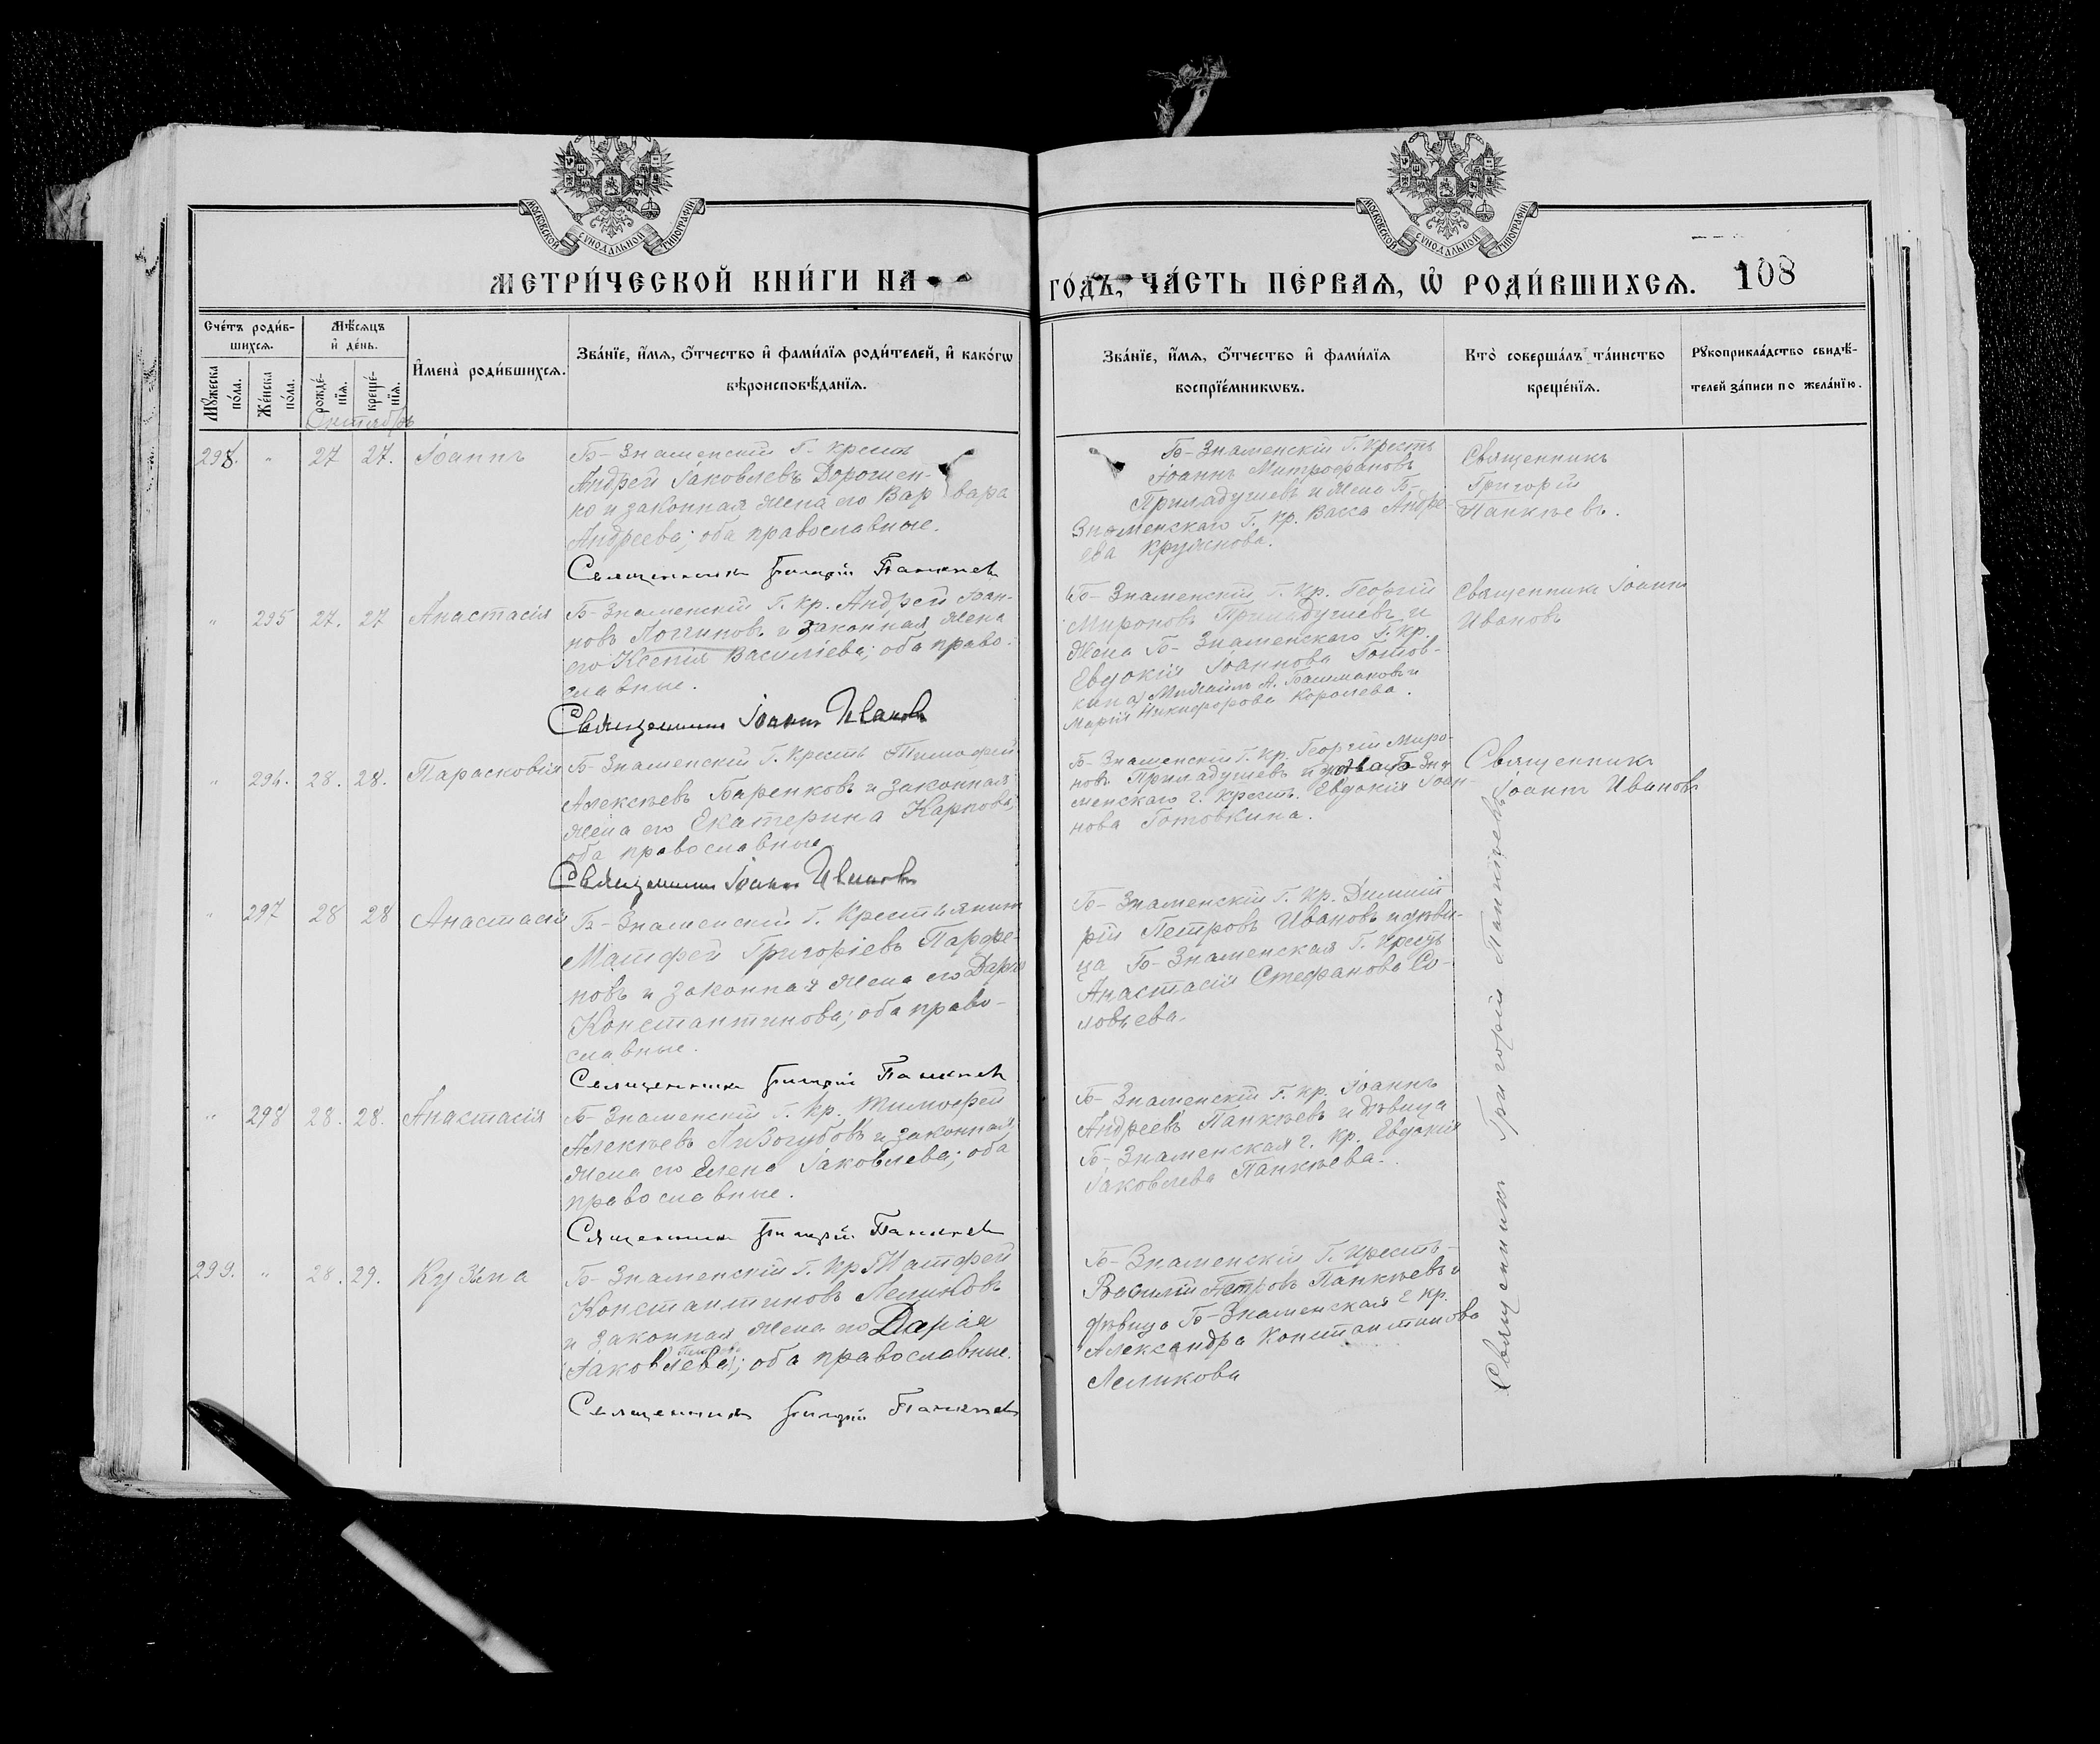 МОСКОВСКОЙ СѴНОДАЛЬНОЙ ТИПОГРАФІИ
МОСКОВСКОЙ СѴНОДАЛЬНОЙ ТИПОГРАФІИ
МЕТРИ́ЧЕСКОЙ КНИ́ГИ НА
ГО́ДЪ, ЧА́СТЬ ПЕ́РВАѦ, Ѡ҆ РОДИ́ВШИХСѦ. 108
Сче́тъ роди́в-
шихсѧ.
Мꙋжеска по́ла.
Же́нска по́ла.
Мѣ́сѧцъ
и҆ де́нь.
рожде́-
нїѧ.
креще́-
нїѧ.
Октябрь
И҆мена̀ роди́вшихсѧ.
Зва́нїе, и҆́мѧ, ѻ҆́тчество и҆ фами́лїѧ роди́телей, и҆ како́гѡ
вѣроисповѣ́данїѧ.
Зва́нїе, и҆́мѧ, ѻ҆́тчество и҆ фами́лїѧ
воспрїе́мникѡвъ.
Кто̀ соверша́лъ та́инство
креще́нїѧ.
Рꙋкоприкла́дство свидѣ́-
телей за́писи по жела́нїю.
298. " 27 27. Іоаннъ
Б-Знаменскій Г. крест
Андрей Іаковлевъ Дорошен-
ко и законная жена его Варвара
Андреева; оба православные.
Священникъ Григорій Панкѣев
Б-Знаменскій Г. крест
Іоаннъ Митрофановъ
Приладушевъ и жена Б-
Знаменскаго Г. кр. Васса Андре-
ева
Священникъ
Григорій
Панкѣевъ.
" 295 27. 27 Анастасія
Б-Знаменскій Г. кр. Андрей Іоан-
новъ Логгиновъ и законная жена
его Ксенія Василіева; оба право-
славные.
Священникъ Іоаннъ Ивановъ
Б-Знаменскій Г. кр. Георгій
Мироновъ Приладушевъ и
жена Б-Знаменскаго Г. кр.
Евдокія Іоаннова Готов-
кина, Михаилъ А. Башмаковъ и
Марія Никифорова Королева.
Священникъ Іоаннъ
Ивановъ
" 296. 28. 28. Парасковія
Б-Знаменскій Г. крест Тимофей
Алексѣевъ Баренковъ и законная
жена его Екатерина Карпова;
оба православные.
Священникъ Іоаннъ Ивановъ
Б-Знаменскій Г. кр. Георгій Миро-
новъ Приладушевъ и Б-Зна-
менскаго г. крест. Евдокія Іоан-
нова Готовкина.
Священникъ
Іоаннъ Ивановъ
" 297 28 28 Анастасія
Б-Знаменскій Г. Крестьянинъ
Матфей Григоріевъ Парфе-
новъ и законная жена его Дарія
Константинова; оба право-
славные.
Священникъ Григорій Панкѣев
Б-Знаменскій Г. кр. Димит-
рій Петровъ Ивановъ и дѣви-
ца Б-Знаменская Г. крест
Анастасія Стефанова Со-
ловьева.
Священникъ Григорій Панкѣевъ
" 298 28. 28. Анастасія
Б-Знаменскій Г. кр. Тимофей
Алексѣевъ Лизогубовъ и законная
жена его Елена Іаковлева; оба
православные.
Священникъ Григорій Панкѣев
Б-Знаменскій Г. кр. Іоаннъ
Андреевъ Панкѣевъ и дѣвица
Б-Знаменская г. кр. Евдокія
Іаковлева Панкѣева.
299. " 28. 29. Кузьма
Б-Знаменскій Г. кр. Матфей
Константиновъ Леликовъ
и законная жена его Дарія
Іаковлева; оба православные.
Священникъ Григорій Панкѣев
Б-Знаменскій Г. крест-
Василій Петровъ Панкѣевъ и
дѣвица Б-Знаменская г. кр.
Александра Константинова
Леликова